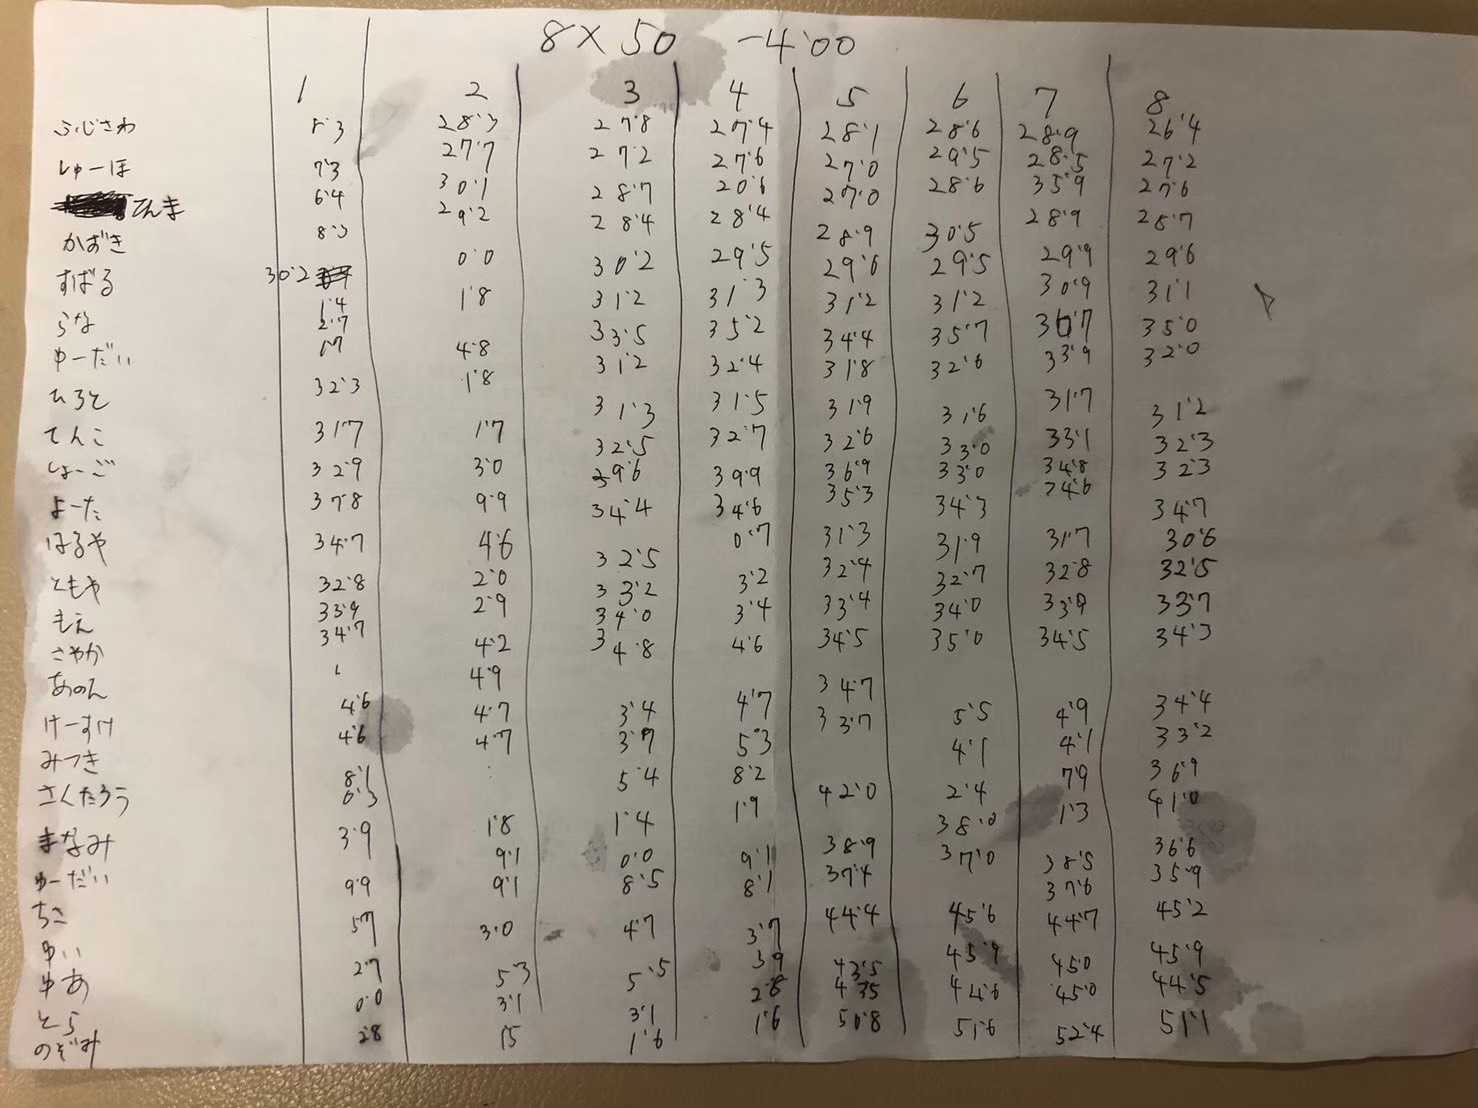 8×50 -4'00
1 2 3 4 5 6 7 8
ふじさわ 8'3 28'3 27'8 27'4 28'1 28'6 28'9 26'4
しゅーほ 7'3 27'7 27'2 27'6 27'0 29'5 28'5 27'2
てんま 6'4 30'1 28'7 20'6 27'0 28'6 35'9 27'6
かずき 8'3 29'2 28'4 28'4 28'9 30'5 28'9 28'7
すばる 30'2 0'0 30'2 29'5 29'6 29'5 29'9 29'6
らな 1'4 1'8 31'2 31'3 31'2 31'2 30'9 31'1
ゆーだい 2'7 4'8 33'5 35'2 34'4 35'7 36'7 35'0
ひろと 1'7 1'8 31'2 32'4 31'8 32'6 33'9 32'0
てんこ 32'3 1'7 31'3 31'5 31'9 31'6 31'7 31'2
しょーご 31'7 3'0 32'5 32'7 32'6 33'0 33'1 32'3
よーた 32'9 9'9 39'6 39'9 36'9 33'0 34'8 32'3
はるや 37'8 4'6 34'4 34'6 35'3 34'3 34'6 34'7
ともや 34'7 2'0 32'5 0'7 31'3 31'9 31'7 30'6
もえ 32'8 2'9 33'2 3'2 32'4 32'7 32'8 32'5
さやか 33'9 4'2 34'0 3'4 33'4 34'0 33'9 33'7
あのん 34'7 4'9 34'8 4'6 34'5 35'0 34'5 34'3
けーすけ 4'6 4'7 3'4 4'7 34'7 5'5 4'9 34'4
みつき 4'6 4'7 3'7 5'3 33'7 4'1 4'1 33'2
さくたろう 8'1 5'4 8'2 2'4 7'9 36'9
まなみ 0'3 1'8 1'4 1'9 42'0 38'0 1'3 41'0
ゆーだい 3'9 9'1 0'0 9'1 38'9 37'0 38'5 36'6
ちこ 9'9 9'1 8'5 8'1 37'4 37'6 35'9
ゆい 5'7 3'0 4'7 3'7 44'4 45'6 44'7 45'2
ゆあ 2'7 5'3 5'5 3'9 43'5 45'9 45'0 45'9
とら 0'0 3'1 3'1 2'8 43'5 44'6 45'0 44'5
のぞみ 2'8 1'5 1'6 1'6 50'8 51'6 52'4 51'1